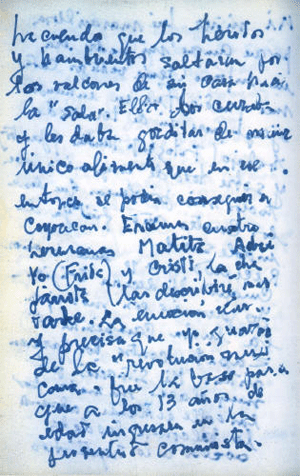 recuerdo que los heridos
y hambrientos saltaban por
los valcones de mi casa hacia
la "sala". Ella los curaba
y les daba gorditas de maiz
único alimento que en ese
entonces se podia conseguir en
Coyoacan. Eramos cuatro
hermanas Matita Adri
Yo (Frida) y Cristi, la cha
parrita (las describiré, mas
tarde. La emocion clara
y precisa que yo guardo
de la "revolucion mexi
cana" fue la base para
que a los 13 años de
edad ingresara en la
juventud comunista.